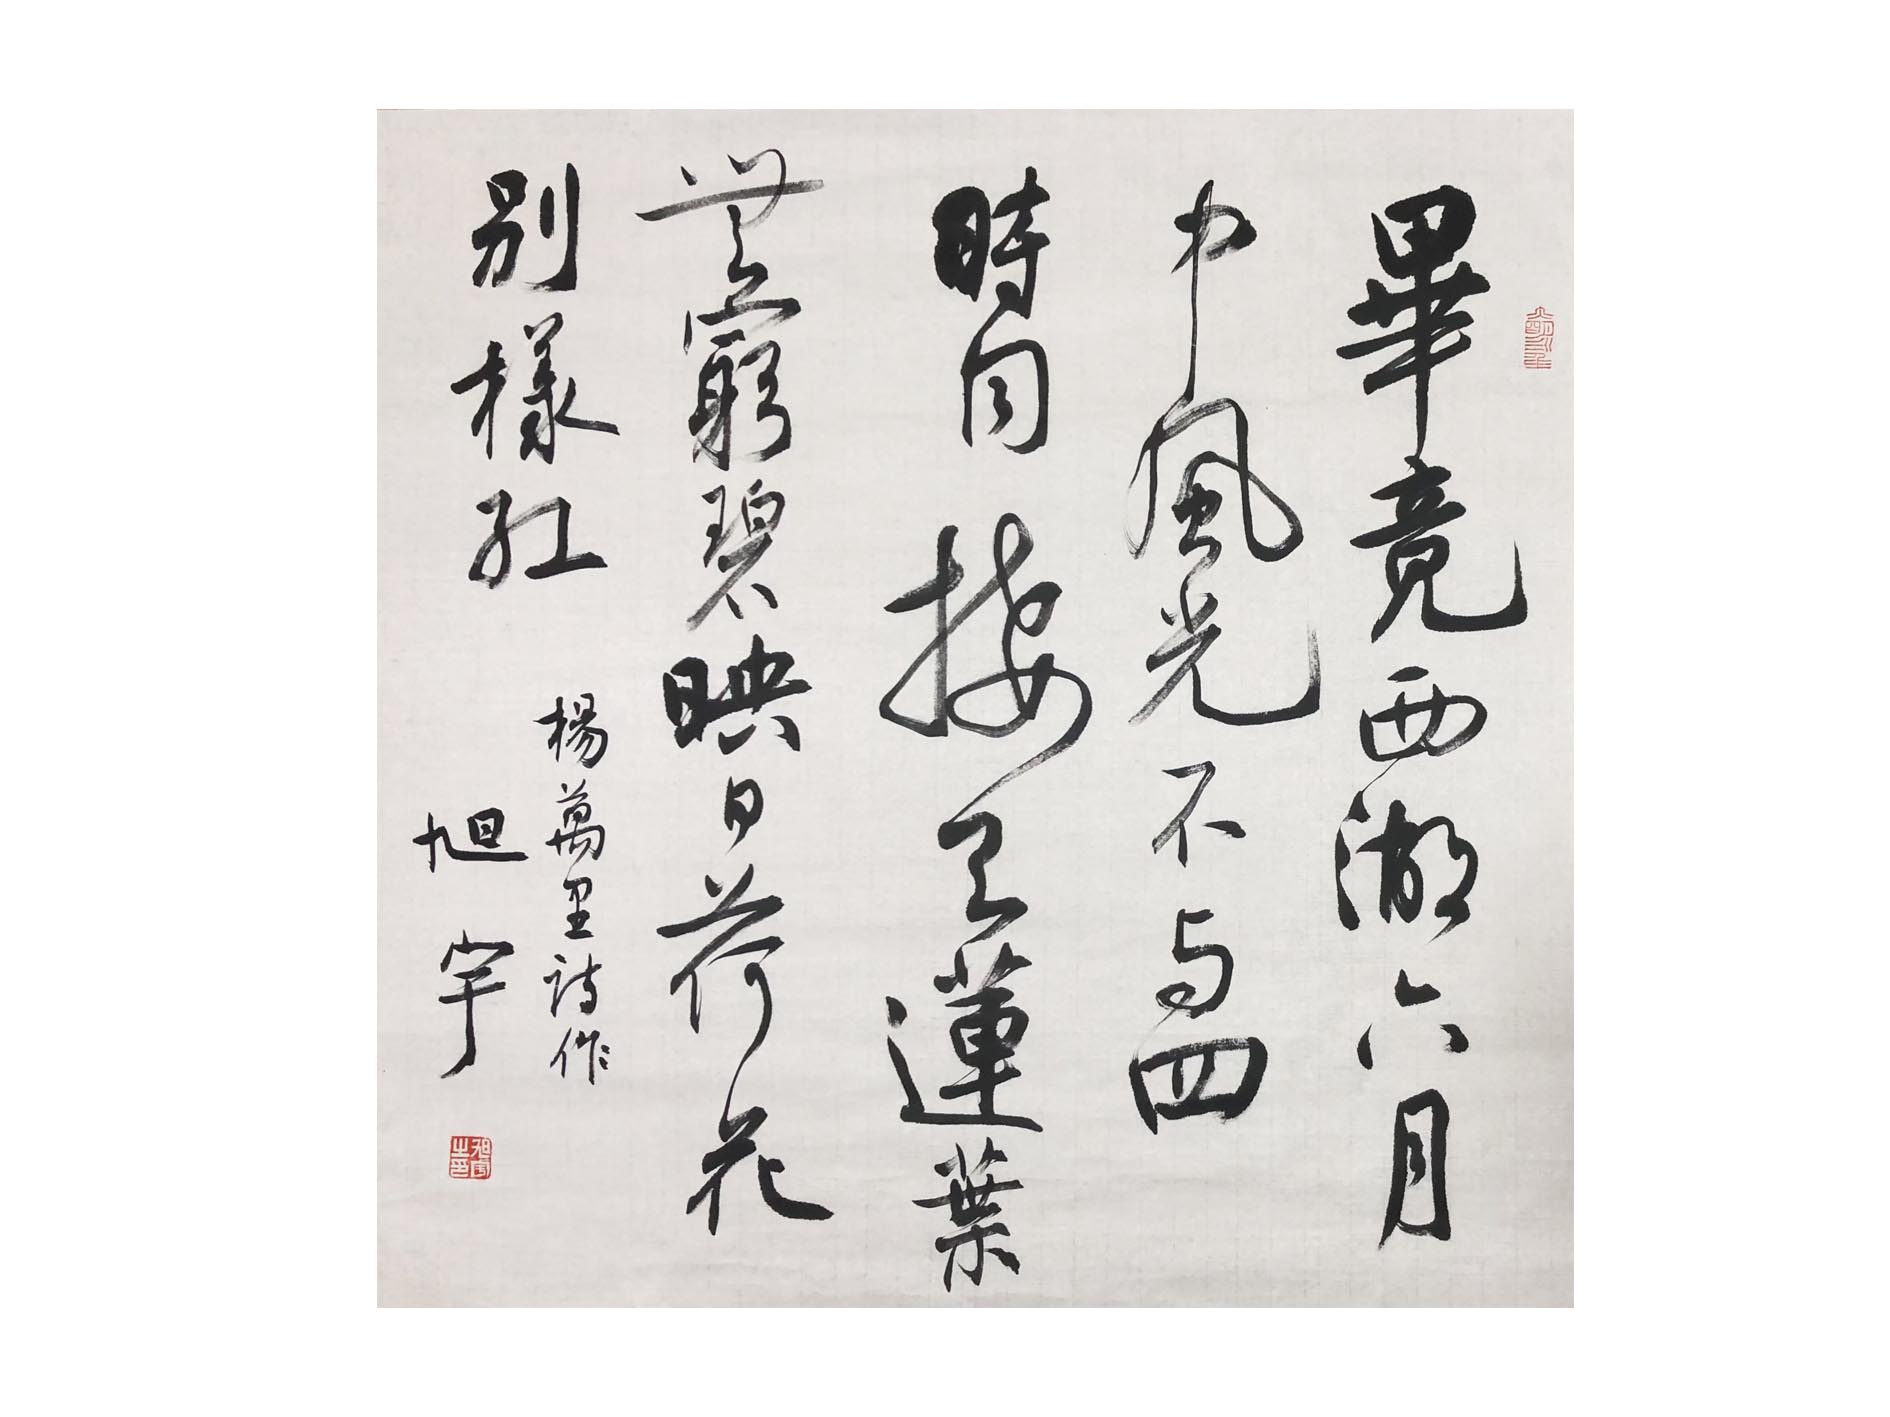 畢竟西湖六月
中風光不与四
時同接天蓮葉
無窮碧映日荷花
別樣红
楊萬里詩作
旭宇
旭宇之印